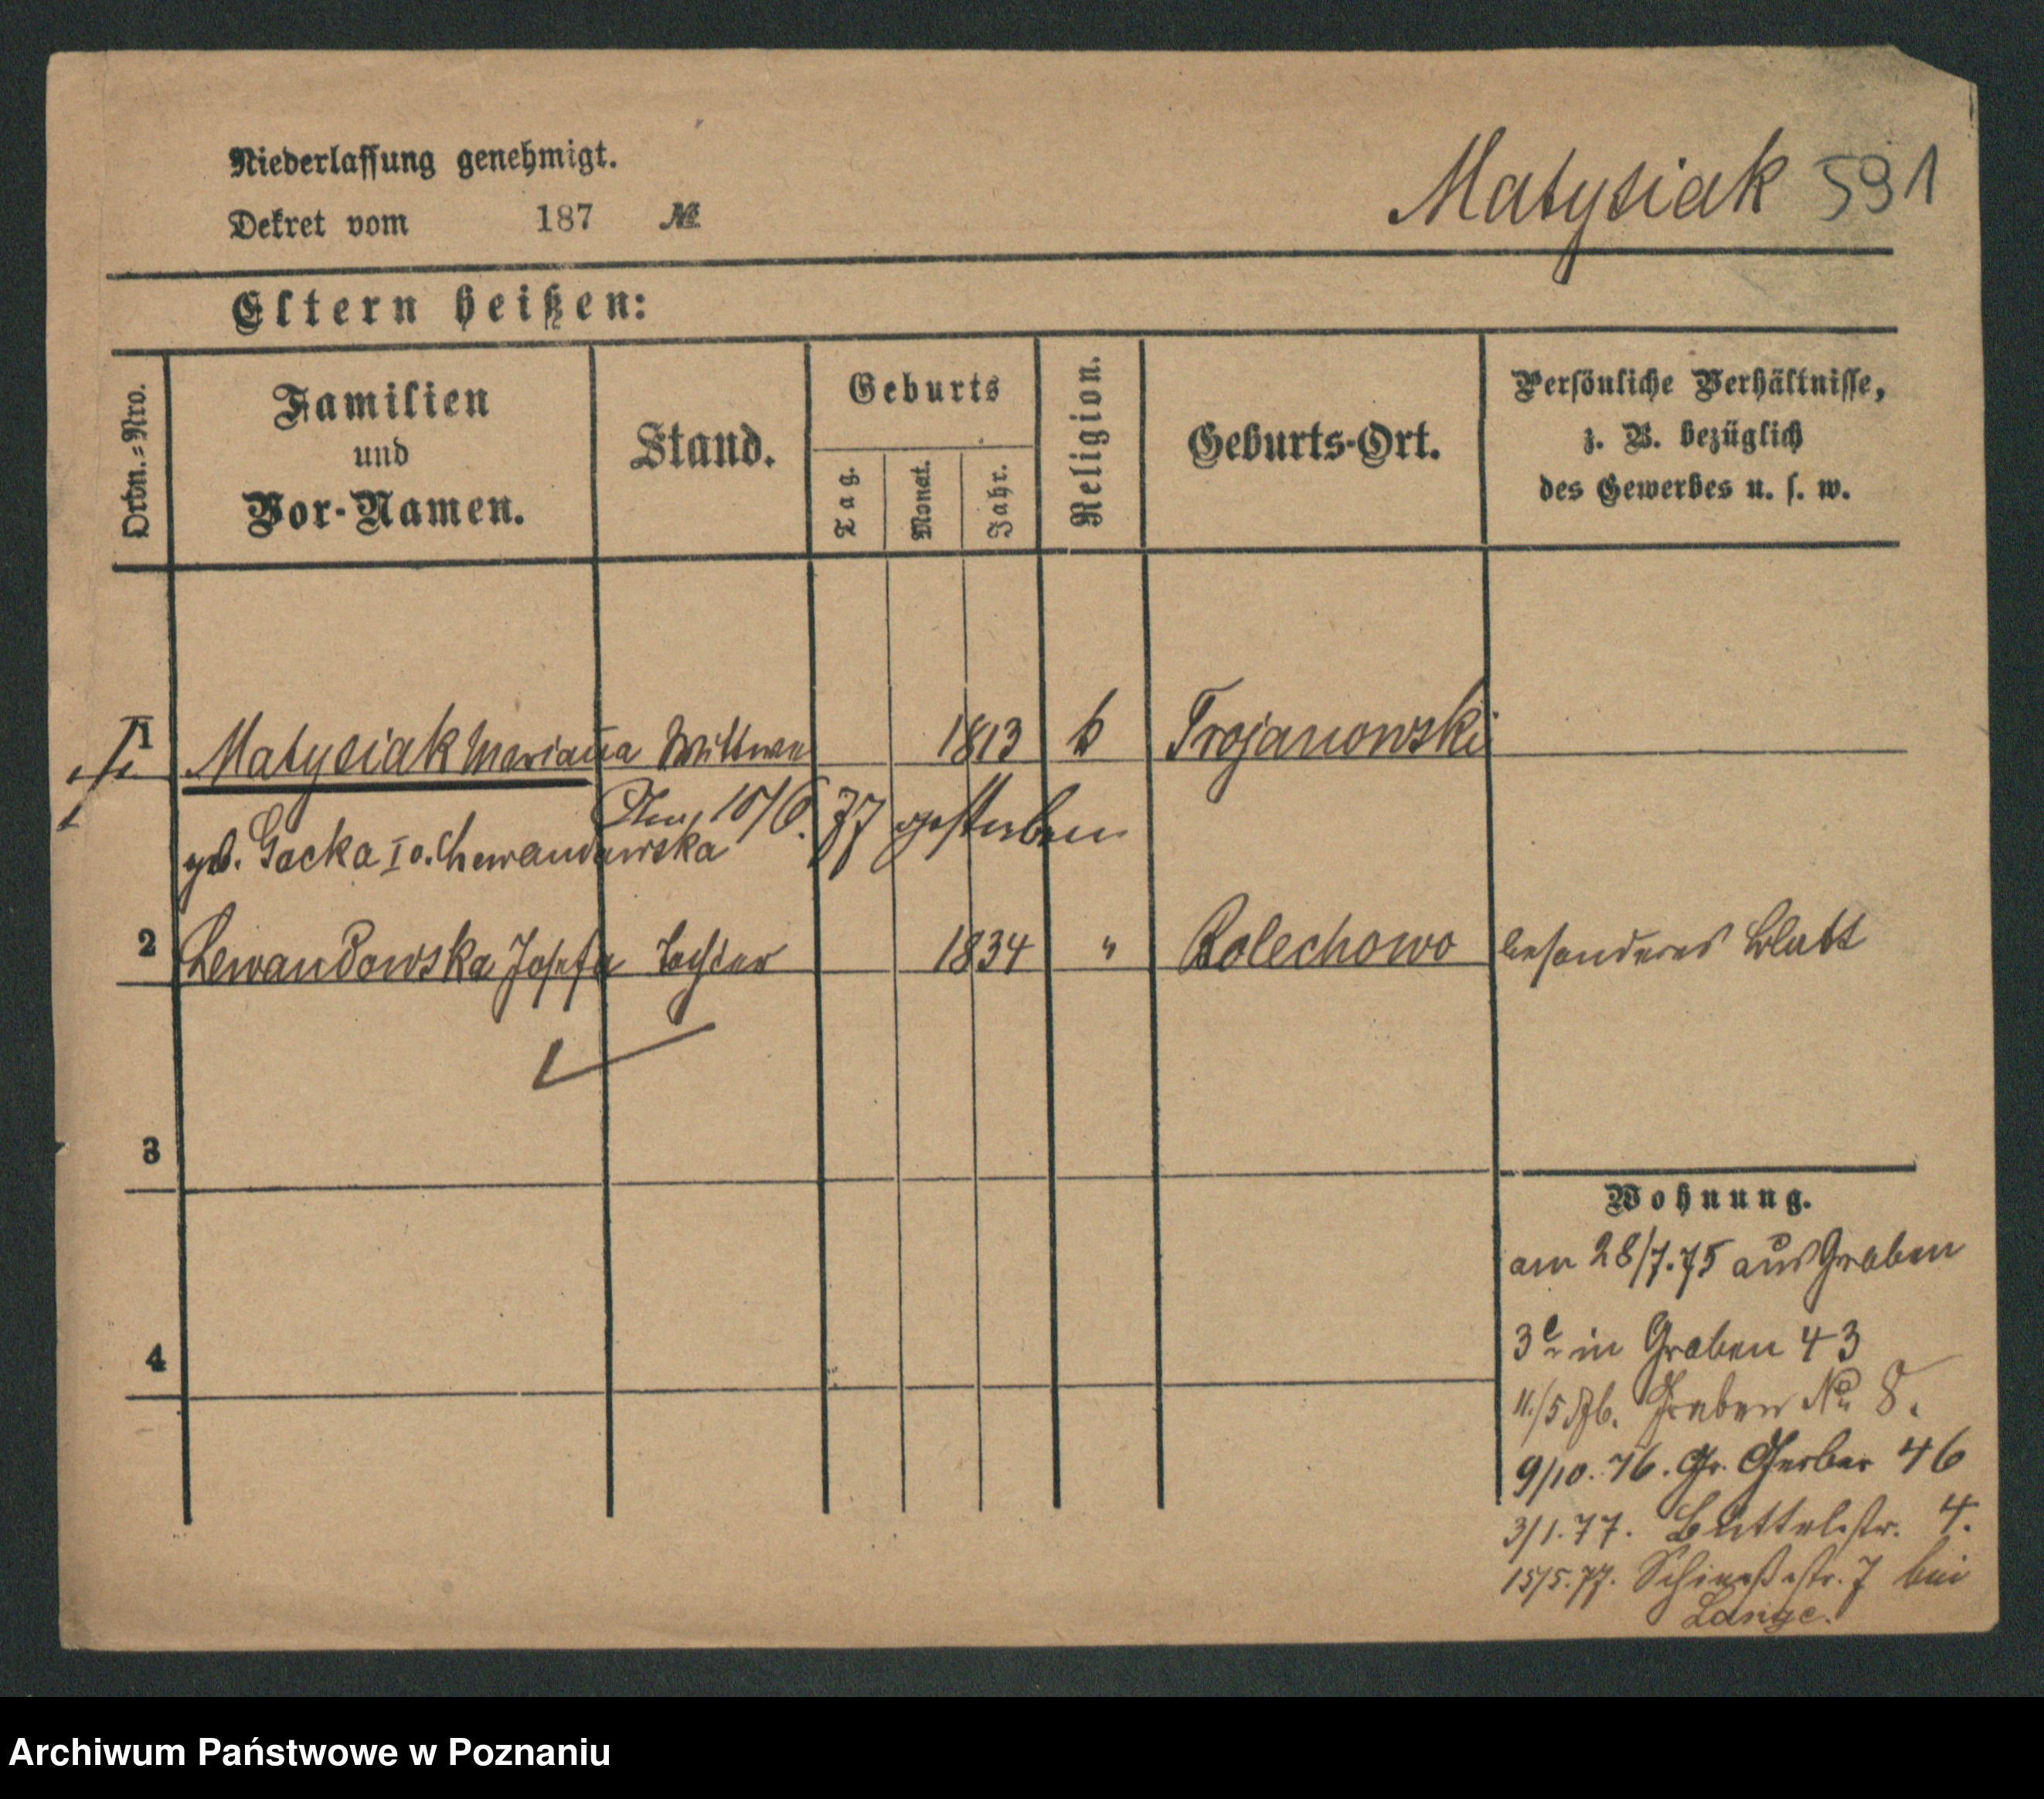 Niederlassung genehmigt.
Matysiak 591
Dekret vom 187 №
Eltern heißen:
Ordn.-Nro.
Familien und Vor-Namen.
Stand.
Geburts
Tag.
Monat.
Jahr.
Religion.
Geburts-Ort.
Persönliche Verhältnisse,
z. B. bezüglich
des Gewerbes u. s. w.
1 Matysiak Marianna Wittwe 1813 k Trojanowski
Am 10/6. 77 gestorben
geb. Gacka I o. Lewandowska
2 Lewandowska Josefa Tochter 1834 " Bolechowo besonderes Blatt
3
Wohnung.
am 28/7.75 aus Graben
3c in Graben 43
4
11./5 76. Graben No 8.
9/10.76. Gr. Gerber 46
3/1.77. Büttelstr. 4.
15/5.77. Schießstr. 7 bei
Lange.
Archiwum Państwowe w Poznaniu